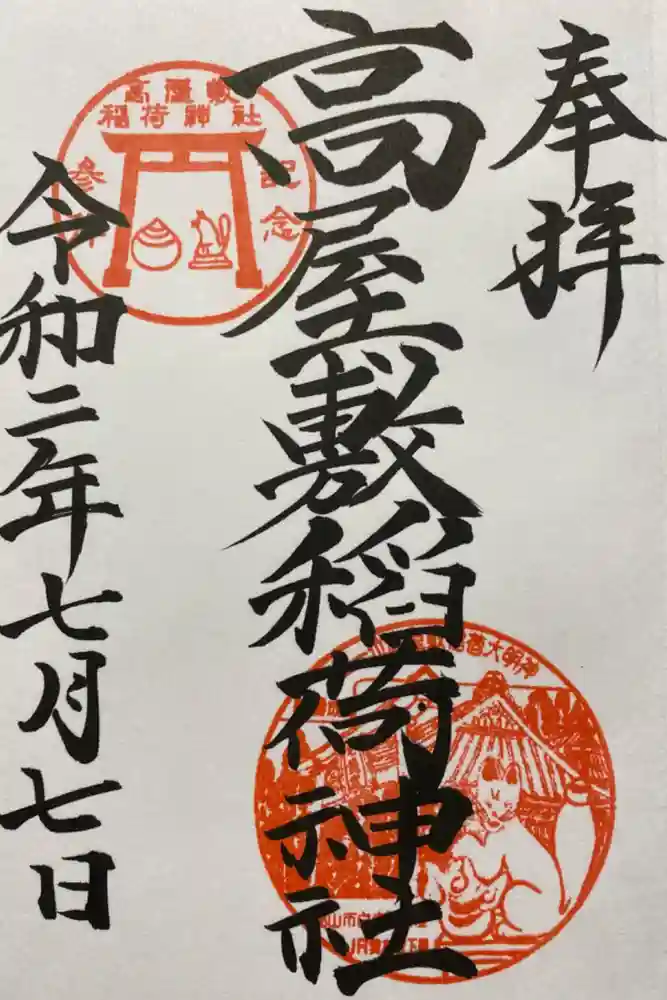 奉拝
高屋敷稲荷神社
令和二年七月七日
高屋敷
稲荷神社
参拝
記念
稲荷大明神